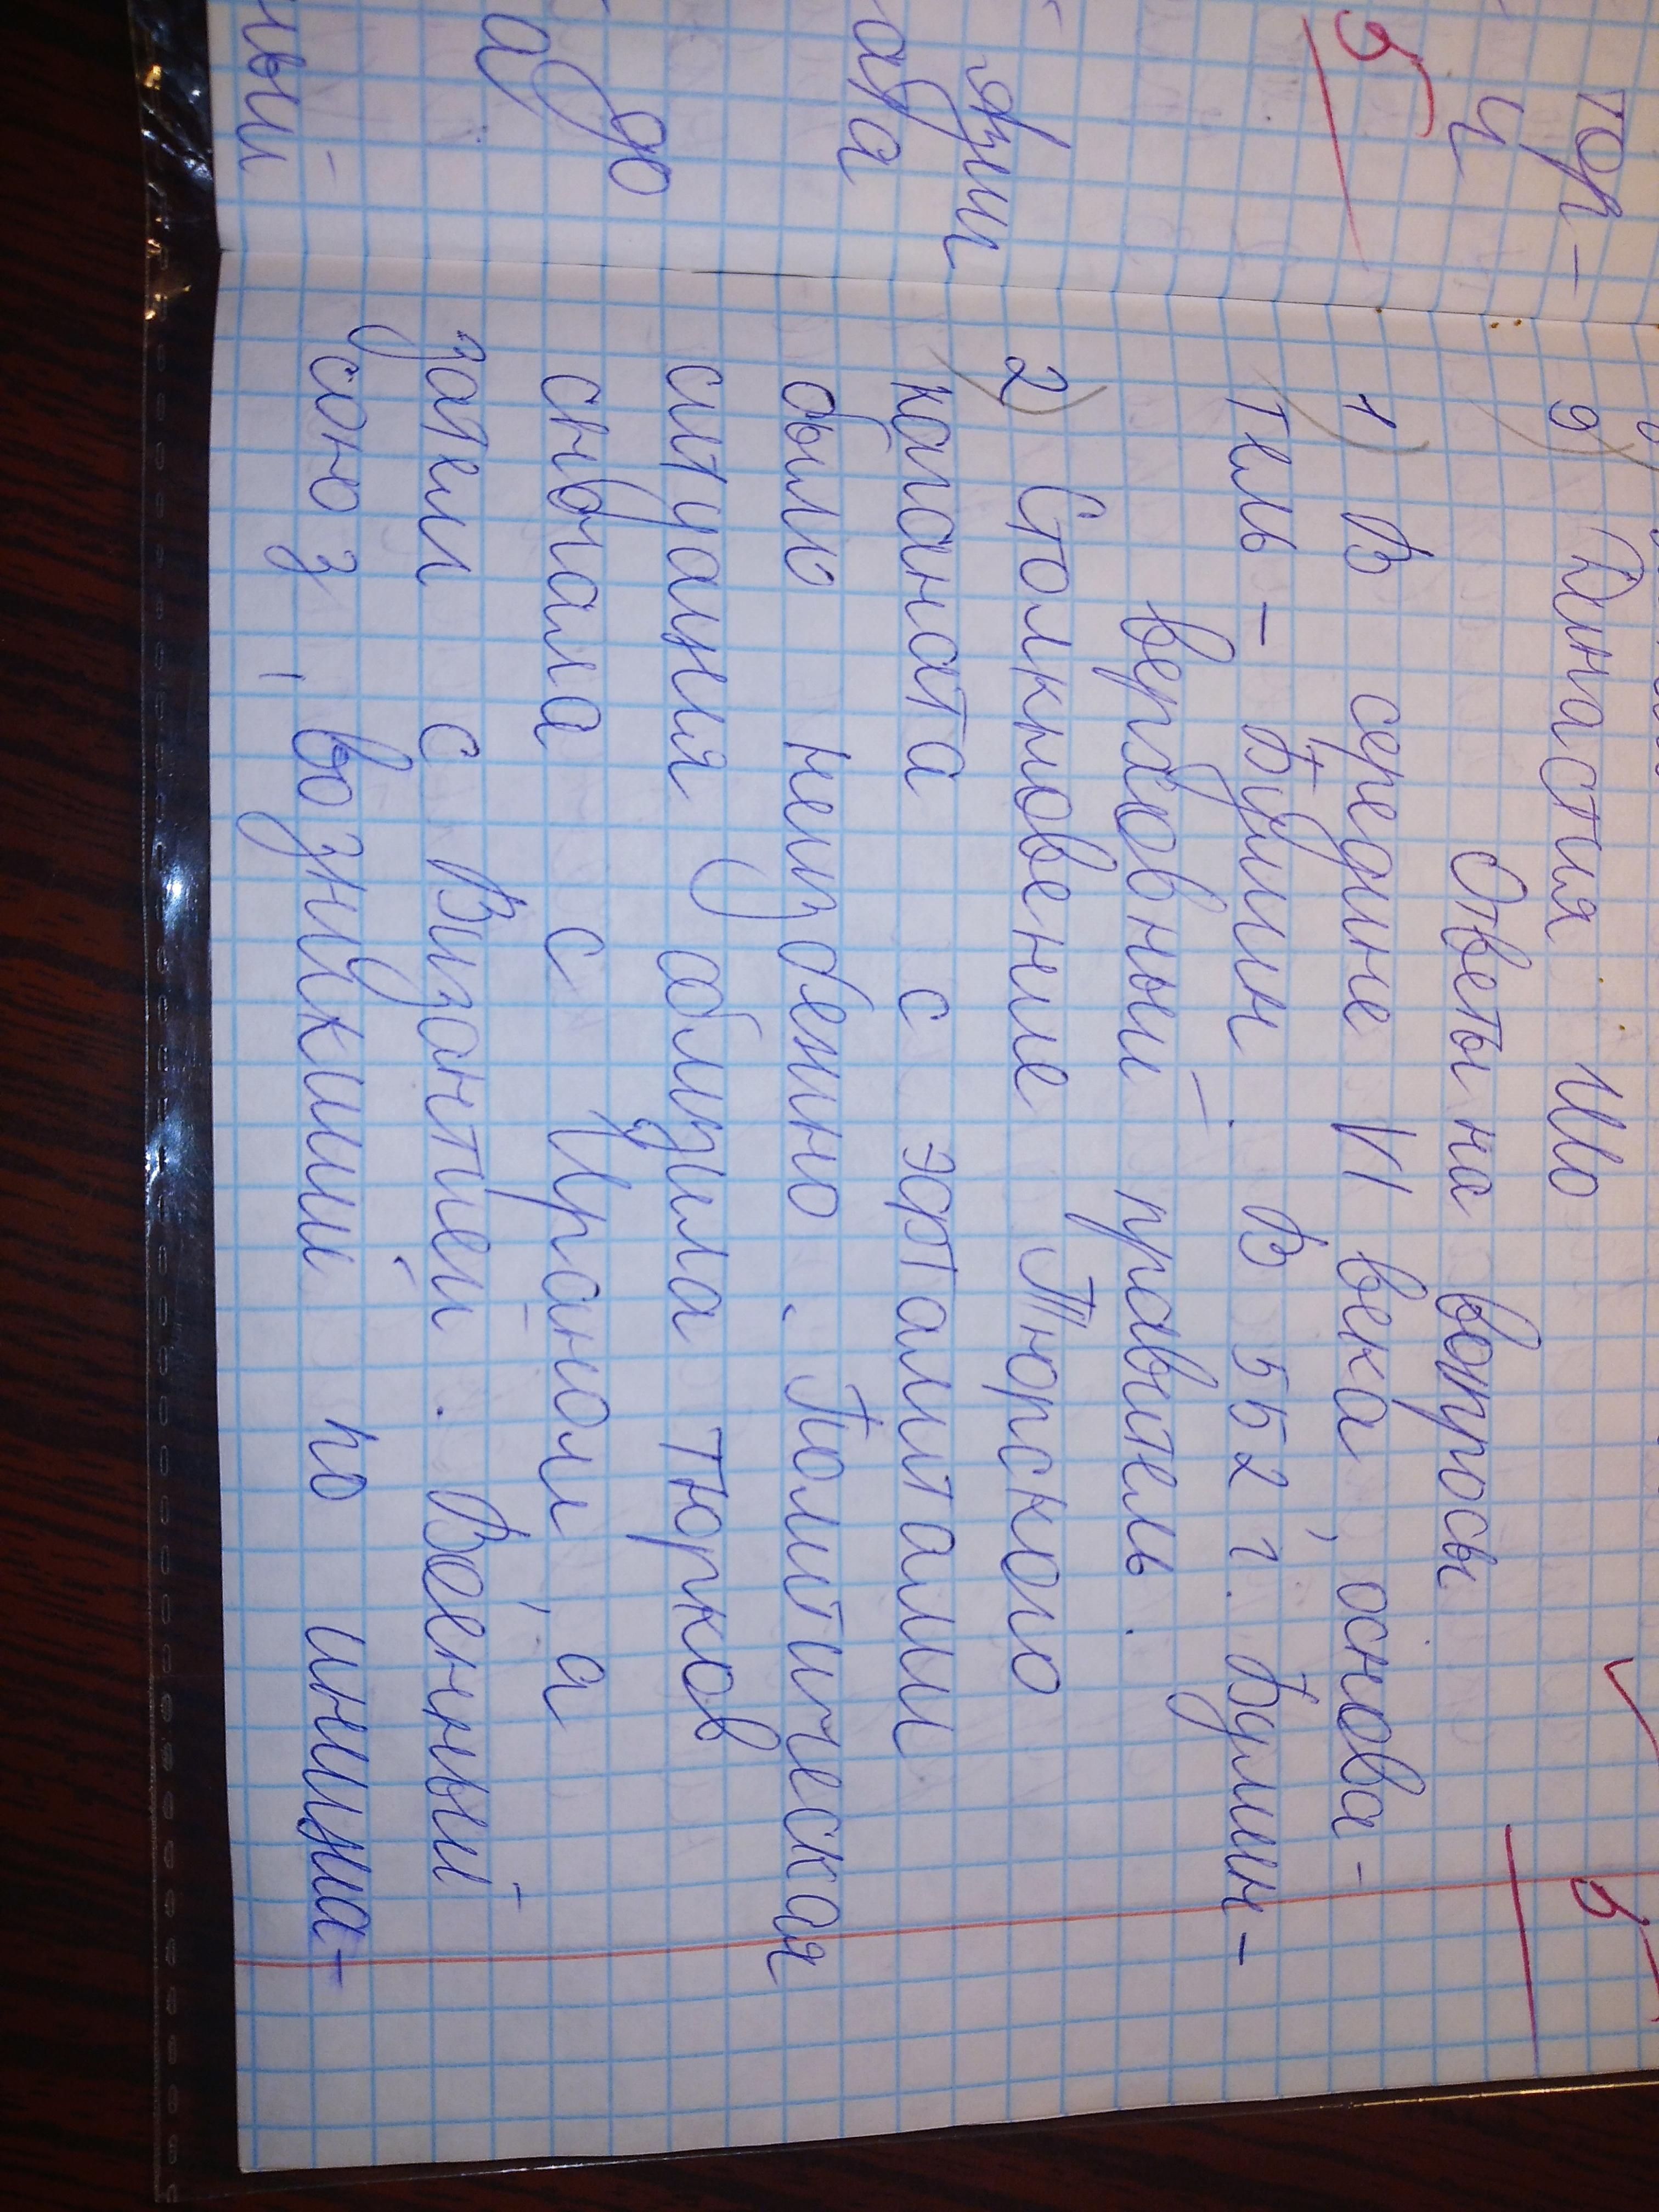 тор-
и
5
язии
ара
а до
ный
9) Династия Ило
Ответы на вопросы
1) В середине VI века, основа-
тель - Бумын. В 552 г. Бумын-
верховный правитель.
2) Столкновение Тюрского
каганата с эфталитами
было неизбежно. Политическая
ситуация сблизила тюрков
сначала с Ираном, а
затем с Византией. Военный
союз, возникший по инициа-